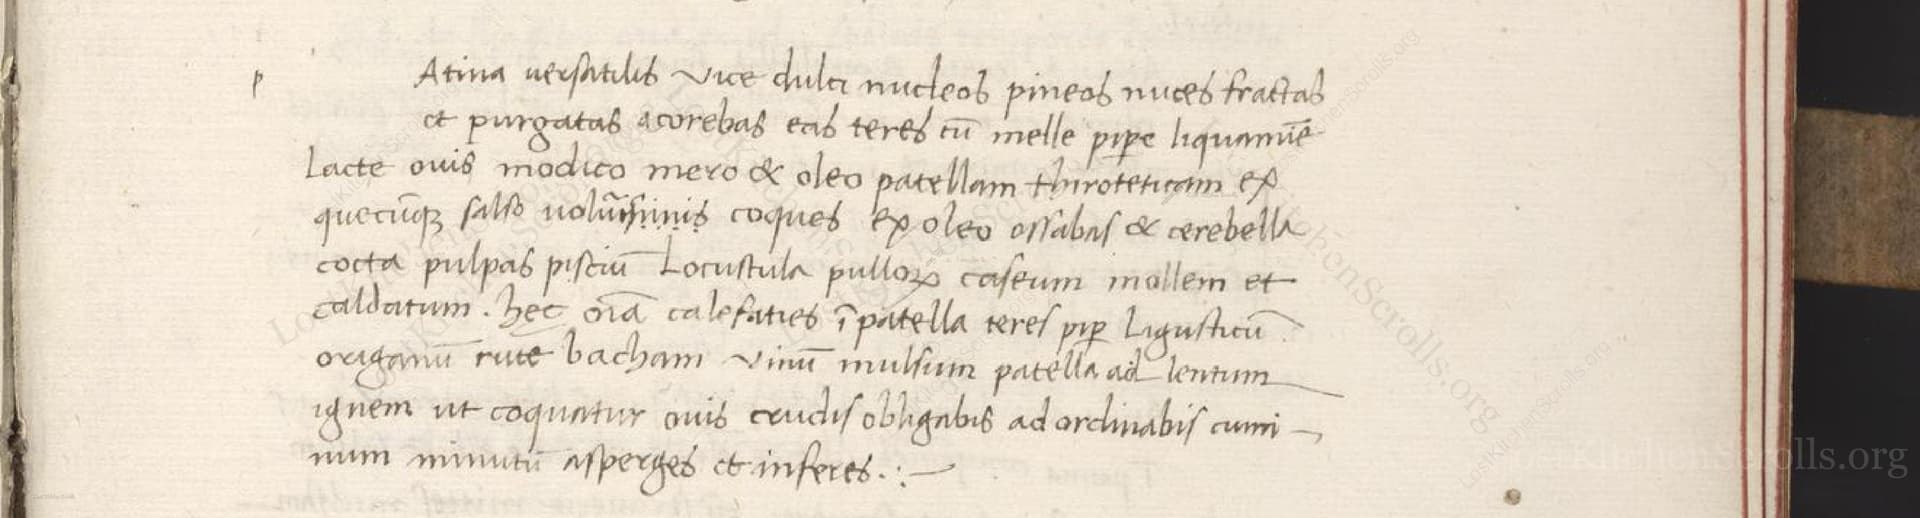 p Atina versatilis vice dulci nucleos pineos nuces fractas
et purgatas atorebas eas teres cū melle pipe liquamīe
Lacte ovis modico mero & oleo patellam thirotetigam ex
quecūqȝ salso volūissinis coques ex oleo ossabas & cerebella
cocta pulpas pisciū Locustula pulloꝝ caseum mollem et
caldatum. hec oīa calefaties ī patella teres pip Ligusticū
origanū rute bacham vinū mulsum patella ad lentum
ignem ut coquatur ovis crudis obligabis adordinabis cumi–
num minutū asperges et inferes . : –
LostKitchenScrolls.org
KitchenScrolls.org